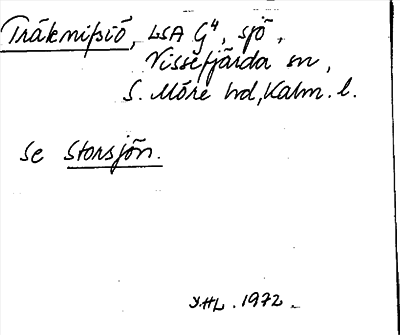 Träknißiö, LSA G4, sjö,
Vissefjärda sn,
S. Möre hd, Kalm. l.
se Storsjön.
YHL. 1972.